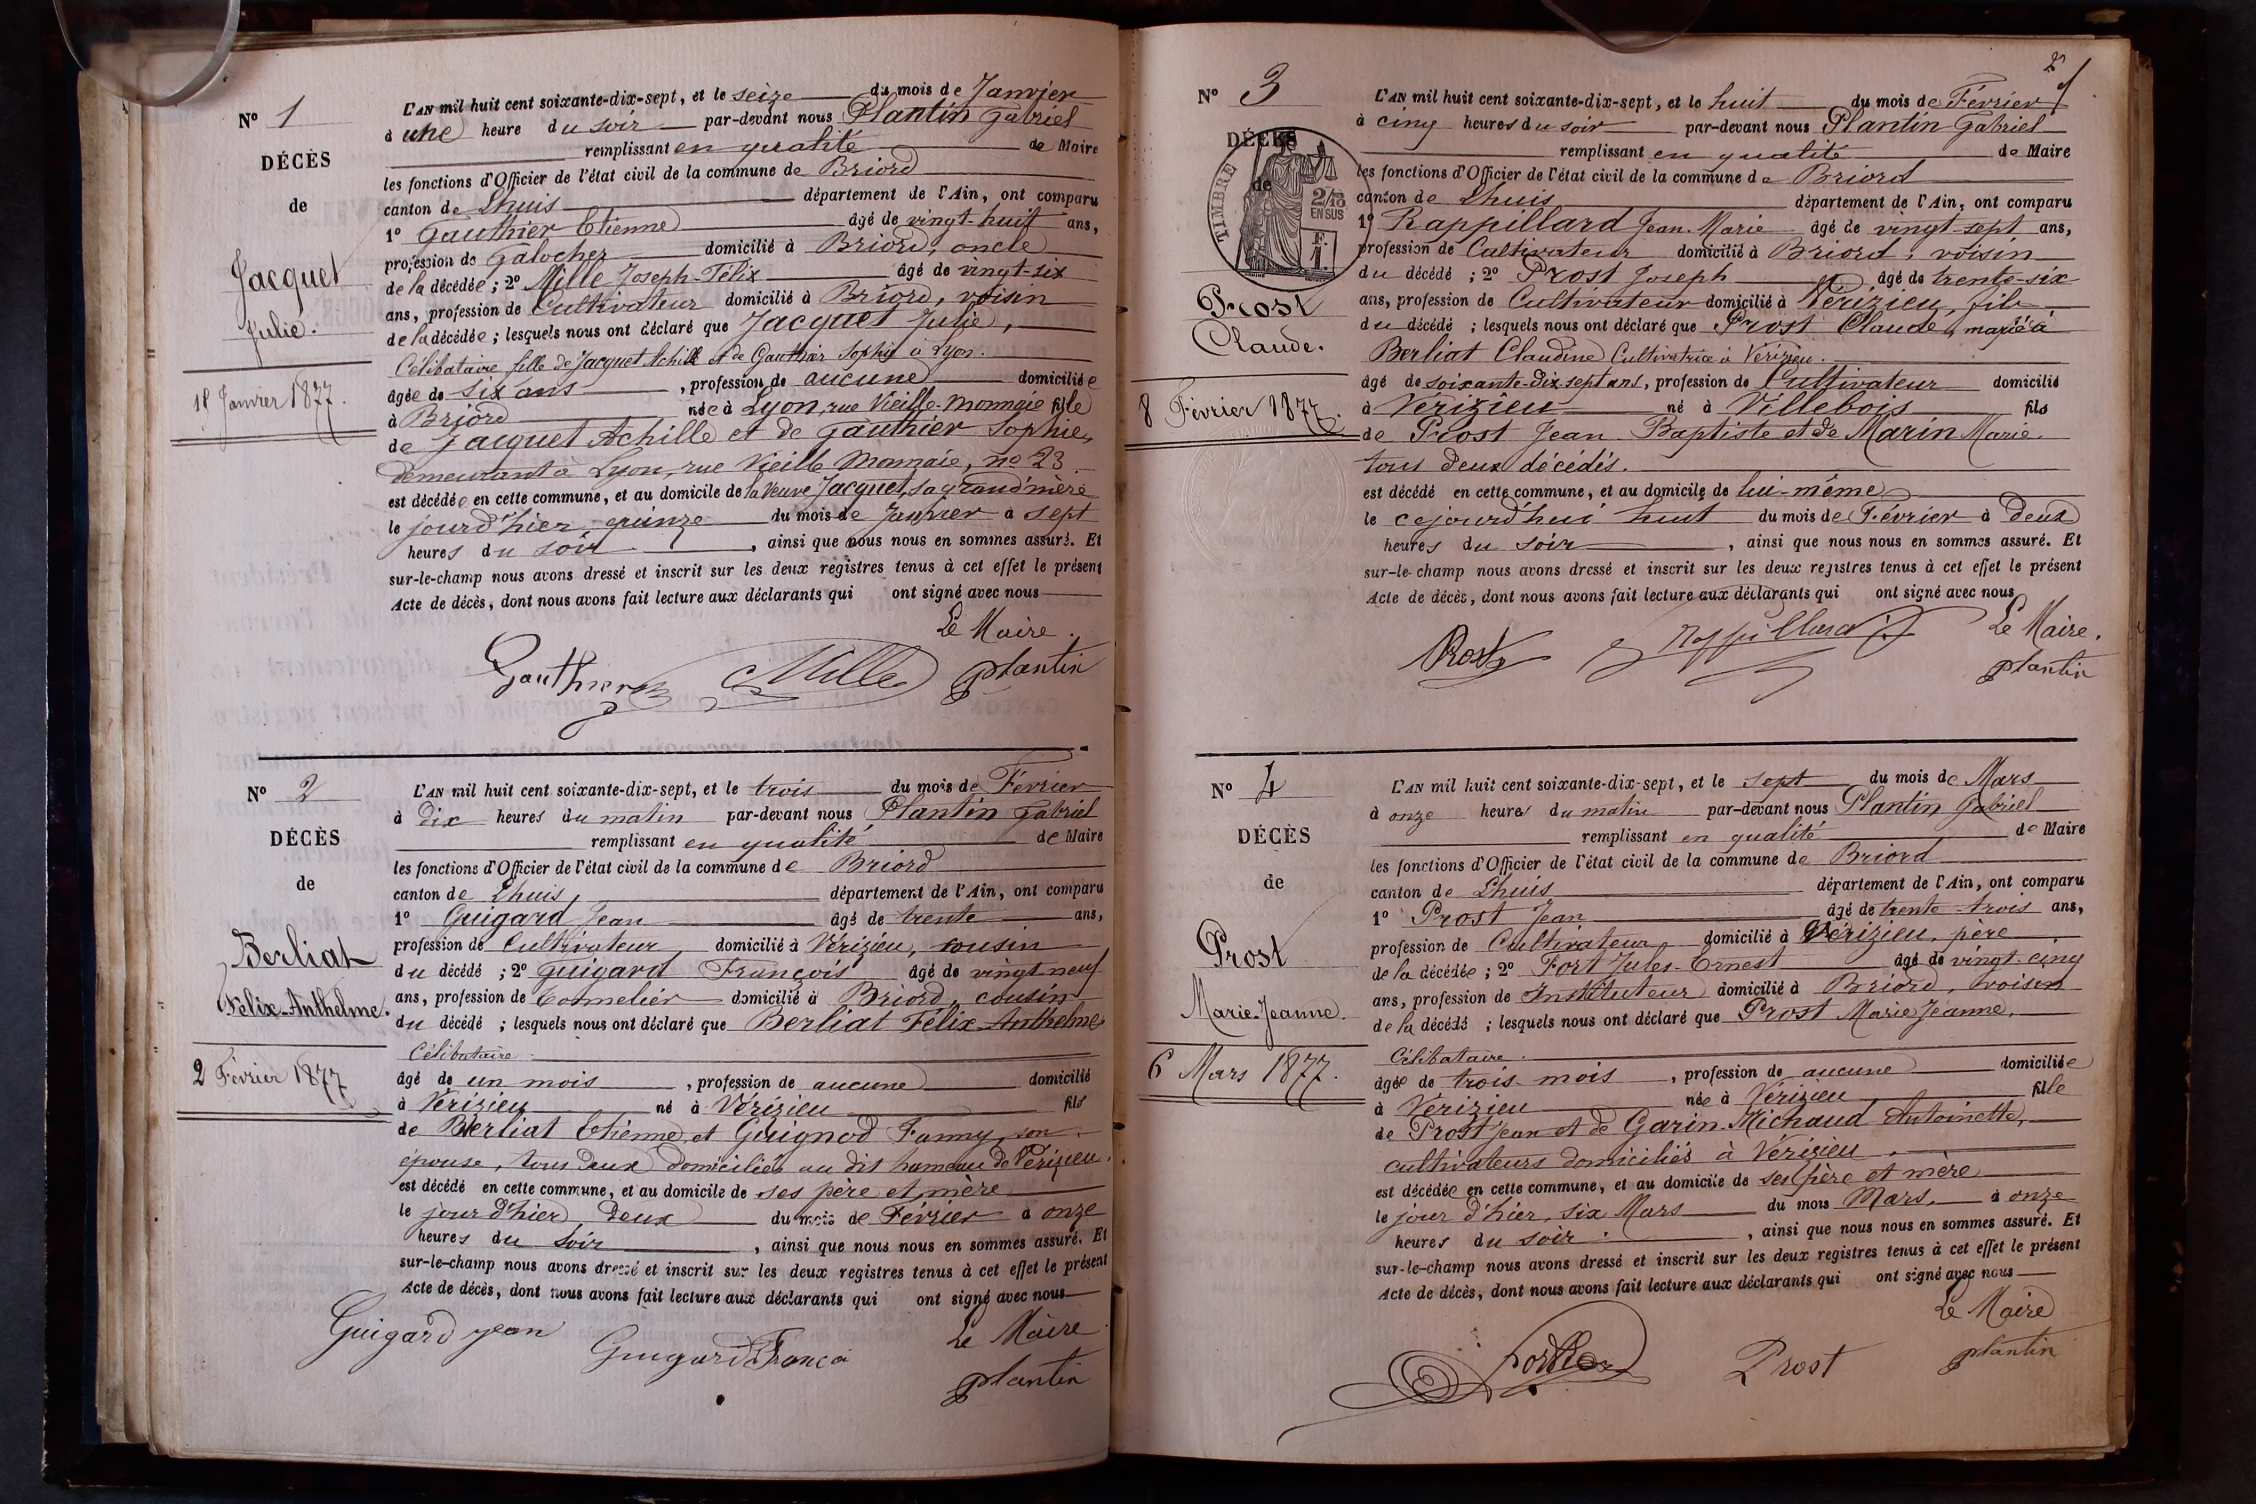 Nº 1
DÉCÈS
de
Jacquet
Julie.
1877.
L'AN mil huit cent soixante-dix-sept, et le seize du mois de Janvier
à une heure du soir par-devant nous Plantin Gabriel
remplissant en qualité de Maire
les fonctions d'Officier de l'état civil de la commune de Briord
canton de Lhuis département de l'Ain, ont comparu
1º Gauthier Etienne âgé de vingt-huit ans,
profession de Galocher domicilié à Briord, oncle
de la décédée ; 2º Mille Joseph-Félix âgé de vingt-six
ans, profession de Cultivateur domicilié à Briord, voisin
de la décédée ; lesquels nous ont déclaré que Jacquet Julie,
Célibataire, fille de Jacquet Achille et de Gauthier Sophie à Lyon.
âgée de six ans, profession de aucune domiciliée
à Briord née à Lyon, rue Vieille-Monnaie fille
de Jacquet Achille et de Gauthier Sophie,
demeurant à Lyon, rue Vieille Monnaie, no 23.
est décédée en cette commune, et au domicile de la Veuve Jacquet, sa grand'mère
le jourd'hier, quinze du mois de Janvier à sept
heures du soir, ainsi que nous nous en sommes assuré. Et
sur-le-champ nous avons dressé et inscrit sur les deux registres tenus à cet effet le présent
Acte de décès, dont nous avons fait lecture aux déclarants qui ont signé avec nous
Le Maire.
Gauthier Mille Plantin
Nº 2
DÉCÈS
de
Berliat
Félix-Anthelme.
2 Février 1877
L'AN mil huit cent soixante-dix-sept, et le trois du mois de Février
à dix heures du matin par-devant nous Plantin Gabriel
remplissant en qualité de Maire
les fonctions d'Officier de l'état civil de la commune de Briord
canton de Lhuis, département de l'Ain, ont comparu
1º Guigard Jean âgé de trente ans,
profession de Cultivateur domicilié à Vérizieu, cousin
du décédé ; 2º Guigard François âgé de vingt neuf
ans, profession de Tonnelier domicilié à Briord, cousin
du décédé ; lesquels nous ont déclaré que Berliat Félix-Anthelme
Célibataire.
âgé de un mois, profession de aucune domicilié
à Vérizieu né à Vérizieu fils
de Berliat Etienne, et Guignod Fanny, son
épouse, tous deux domiciliés au dit hameau de Vérizieu.
est décédé en cette commune, et au domicile de ses père et mère
le jour d'hier, deux du mois de Février à onze
heures du soir, ainsi que nous nous en sommes assuré. Et
sur-le-champ nous avons dressé et inscrit sur les deux registres tenus à cet effet le présent
Acte de décès, dont nous avons fait lecture aux déclarants qui ont signé avec nous
Guigard jean Guigard Le Maire
Plantin
2
Nº 3
DÉCÈS
de
TIMBRE
2/10
EN SUS
F.
1.
Prost
Claude.
8 Février 1877.
L'AN mil huit cent soixante-dix-sept, et le huit du mois de Février
à cinq heures du soir par-devant nous Plantin Gabriel
remplissant en qualité de Maire
les fonctions d'Officier de l'état civil de la commune de Briord
canton de Lhuis département de l'Ain, ont comparu
1º Rappillard Jean-Marie âgé de vingt-sept ans,
profession de Cultivateur domicilié à Briord, voisin
du décédé ; 2º Prost Joseph âgé de trente-six
ans, profession de Cultivateur domicilié à Vérizieu, fils
du décédé ; lesquels nous ont déclaré que Prost Claude, marié à
Berliat Claudine Cultivatrice à Vérizieu.
âgé de soixante-dix-sept ans, profession de Cultivateur domicilié
à Vérizieu né à Villebois fils
de Prost Jean-Baptiste et de Marin Marie.
tous deux décédés.
est décédé en cette commune, et au domicile de lui-même
le cejourd'hui huit du mois de Février à deux
heures du soir, ainsi que nous nous en sommes assuré. Et
sur-le-champ nous avons dressé et inscrit sur les deux registres tenus à cet effet le présent
Acte de décès, dont nous avons fait lecture aux déclarants qui ont signé avec nous
Prost Rappillard Le Maire.
Plantin
Nº 4
DÉCÈS
de
Prost
Marie-Jeanne.
6 Mars 1877.
L'AN mil huit cent soixante-dix-sept, et le sept du mois de Mars
à onze heures du matin par-devant nous Plantin, Gabriel
remplissant en qualité de Maire
les fonctions d'Officier de l'état civil de la commune de Briord
canton de Lhuis département de l'Ain, ont comparu
1º Prost Jean âgé de trente-trois ans,
profession de Cultivateur domicilié à Vérizieu, père
de la décédée ; 2º Fort Jules-Ernest âgé de vingt-cinq
ans, profession de Instituteur domicilié à Briord, voisin
de la décédé ; lesquels nous ont déclaré que Prost Marie Jeanne,
Célibataire.
âgée de trois mois, profession de aucune domiciliée
à Vérizieu née à Vérizieu fille
de Prost Jean et de Garin-Michaud Antoinette,
cultivateurs domiciliés à Vérizieu.
est décédée en cette commune, et au domicile de ses père et mère
le jour d'hier, six Mars du mois Mars, à onze
heures du soir, ainsi que nous nous en sommes assuré. Et
sur-le-champ nous avons dressé et inscrit sur les deux registres tenus à cet effet le présent
Acte de décès, dont nous avons fait lecture aux déclarants qui ont signé avec nous
Le Maire
Prost Plantin